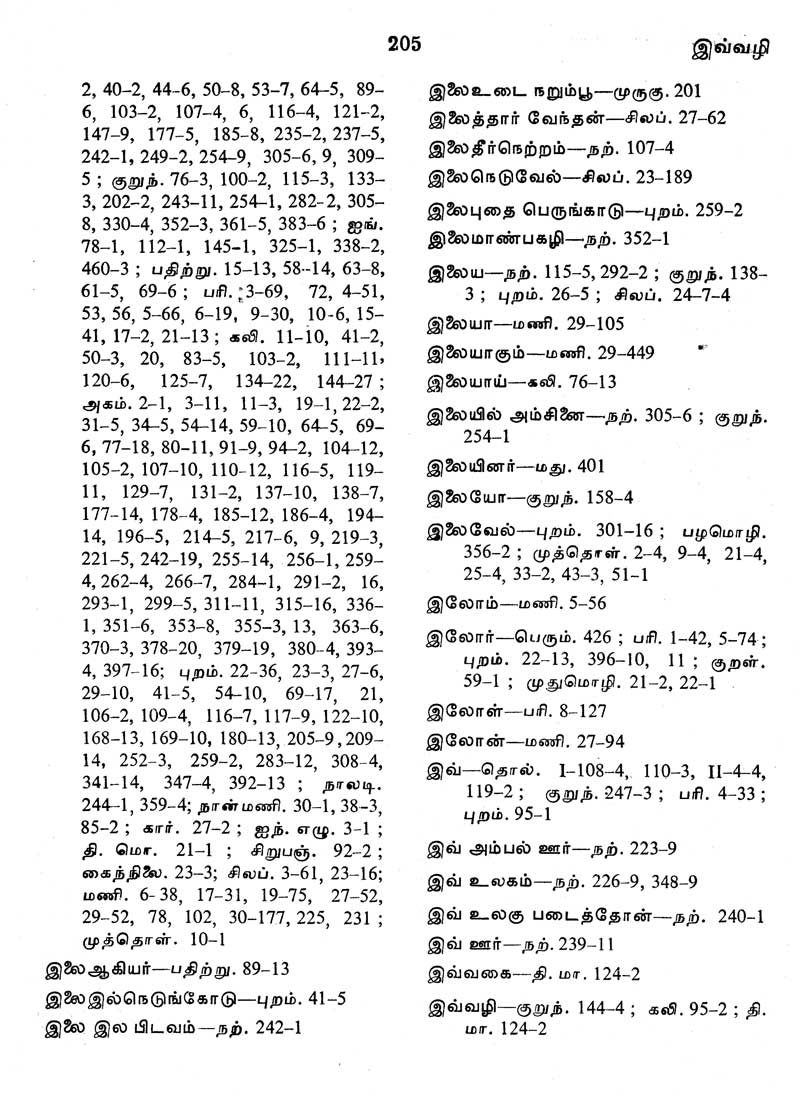 205
இவ்வழி
2, 40–2, 44-6, 50–8, 53–7, 64–5, 89–
6, 103–2, 107–4, 6, 116–4, 121–2,
147–9, 177–5, 185–8, 235–2, 237–5,
242–1, 249–2, 254–9, 305–6, 9, 309–
5 ; குறுந். 76–3, 100–2, 115–3, 133–
3, 202–2, 243–11, 254–1, 282–2, 305–
8, 330–4, 352–3, 361–5, 383–6 ; ஐங்.
78–1, 112–1, 145-1, 325–1, 338–2,
460–3 ; பதிற்று. 15–13, 58–14, 63–8,
61–5, 69–6 ; பரி. 3–69, 72, 4–51,
53, 56, 5–66, 6–19, 9–30, 10-6, 15–
41, 17–2, 21–13 ; கலி. 11–10, 41–2,
50–3, 20, 83–5, 103–2, 111–11,
120–6, 125–7, 134–22, 144–27 ;
அகம். 2–1, 3–11, 11–3, 19–1, 22–2,
31–5, 34–5, 54–14, 59–10, 64–5, 69–
6, 77–18, 80–11, 91–9, 94–2, 104–12,
105–2, 107–10, 110–12, 116–5, 119–
11, 129–7, 131–2, 137–10, 138–7,
177–14, 178–4, 185–12, 186–4, 194–
14, 196–5, 214–5, 217–6, 9, 219–3,
221–5, 242–19, 255–14, 256–1, 259–
4, 262–4, 266–7, 284–1, 291–2, 16,
293–1, 299–5, 311–11, 315–16, 336–
1, 351–6, 353–8, 355–3, 13, 363–6,
370–3, 378–20, 379–19, 380–4, 393–
4, 397–16; புறம். 22–36, 23–3, 27–6,
29–10, 41–5, 54–10, 69–17, 21,
106–2, 109–4, 116–7, 117–9, 122–10,
168–13, 169–10, 180–13, 205–9, 209–
14, 252–3, 259–2, 283–12, 308–4,
341–14, 347–4, 392–13 ; நாலடி.
244–1, 359–4; நான்மணி. 30–1, 38–3,
85–2 ; கார். 27–2 ; ஐந். எழு. 3–1 ;
தி. மொ. 21–1 ; சிறுபஞ். 92–2 ;
கைந்நிலை. 23–3; சிலப். 3–61, 23–16;
மணி. 6-38, 17–31, 19–75, 27–52,
29–52, 78, 102, 30–177, 225, 231 ;
முத்தொள். 10–1
இலைஆகியர்—பதிற்று. 89–13
இலைஇல்நெடுங்கோடு—புறம். 41–5
இலை இல பிடவம்—நற். 242–1
இலைஉடை நறும்பூ—முருகு. 201
இலைத்தார் வேந்தன்—சிலப். 27–62
இலைதீர்நெற்றம்—நற். 107–4
இலைநெடுவேல்—சிலப். 23–189
இலைபுதை பெருங்காடு—புறம். 259–2
இலைமாண்பகழி—நற். 352–1
இலைய—நற். 115–5, 292–2 ; குறுந். 138–
3 ; புறம். 26–5 ; சிலப். 24–7–4
இலையா—மணி. 29–105
இலையாகும்—மணி. 29–449
இலையாய்—கலி. 76–13
இலையில் அம்சினை—நற். 305–6 ; குறுந்.
254–1
இலையினர்—மது. 401
இலையோ—குறுந். 158–4
இலைவேல்—புறம். 301–16 ; பழமொழி.
356–2 ; முத்தொள். 2–4, 9–4, 21–4,
25–4, 33–2, 43–3, 51–1
இலோம்—மணி. 5–56
இலோர்—பெரும். 426 ; பரி. 1–42, 5–74 ;
புறம். 22–13, 396–10, 11 ; குறள்.
59–1 ; முதுமொழி. 21–2, 22–1
இலோள்—பரி. 8–127
இலோன்—மணி. 27–94
இவ்—தொல். I–108–4, 110–3, II–4–4,
119–2 ; குறுந். 247–3 ; பரி. 4–33 ;
புறம். 95–1
இவ் அம்பல் ஊர்—நற். 223–9
இவ் உலகம்—நற். 226–9, 348–9
இவ் உலகு படைத்தோன்—நற். 240–1
இவ் ஊர்—நற். 239–11
இவ்வகை—தி. மா. 124–2
இவ்வழி—குறுந். 144–4 ; கலி. 95–2 ; தி.
மா. 124–2